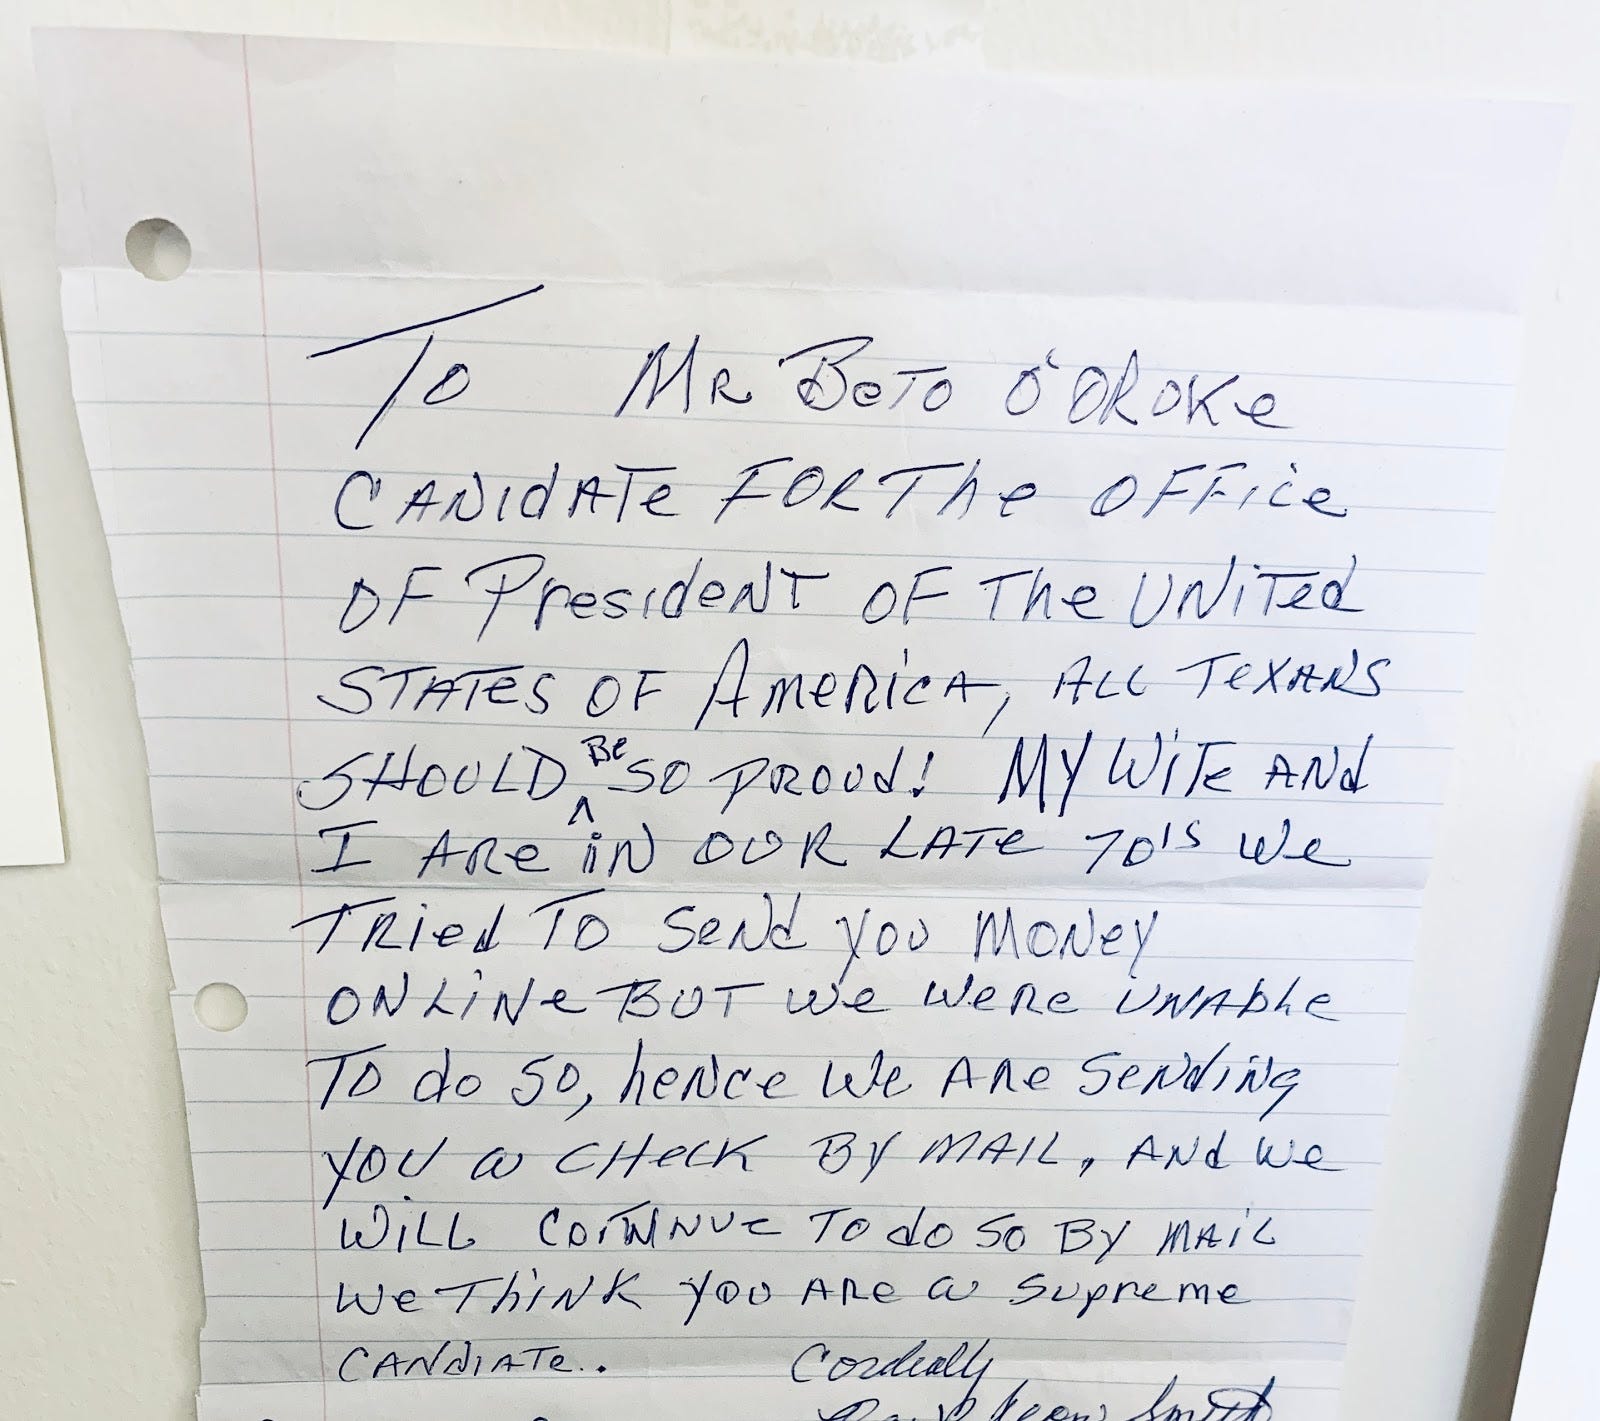 To Mr Beto O'OROKe
CANIdATe FOR The OFFice
OF President OF The UNiTed
STATES OF America, ALL TEXANS
SHOULD BE SO PROUd! MY WiFe AND
I ARe iN OUR LATE 70's We
TRied TO SeNd you MONey
ONLiNe BUT we weRe UNAble
TO do SO, heNce We ARe SeNdiNg
YOU a CHeCK BY MAIL, ANd we
WiLL COiTNNUE TO do SO BY MAIL
We ThiNK you ARe a Supreme
CANdIATe..
Cordially
Smith